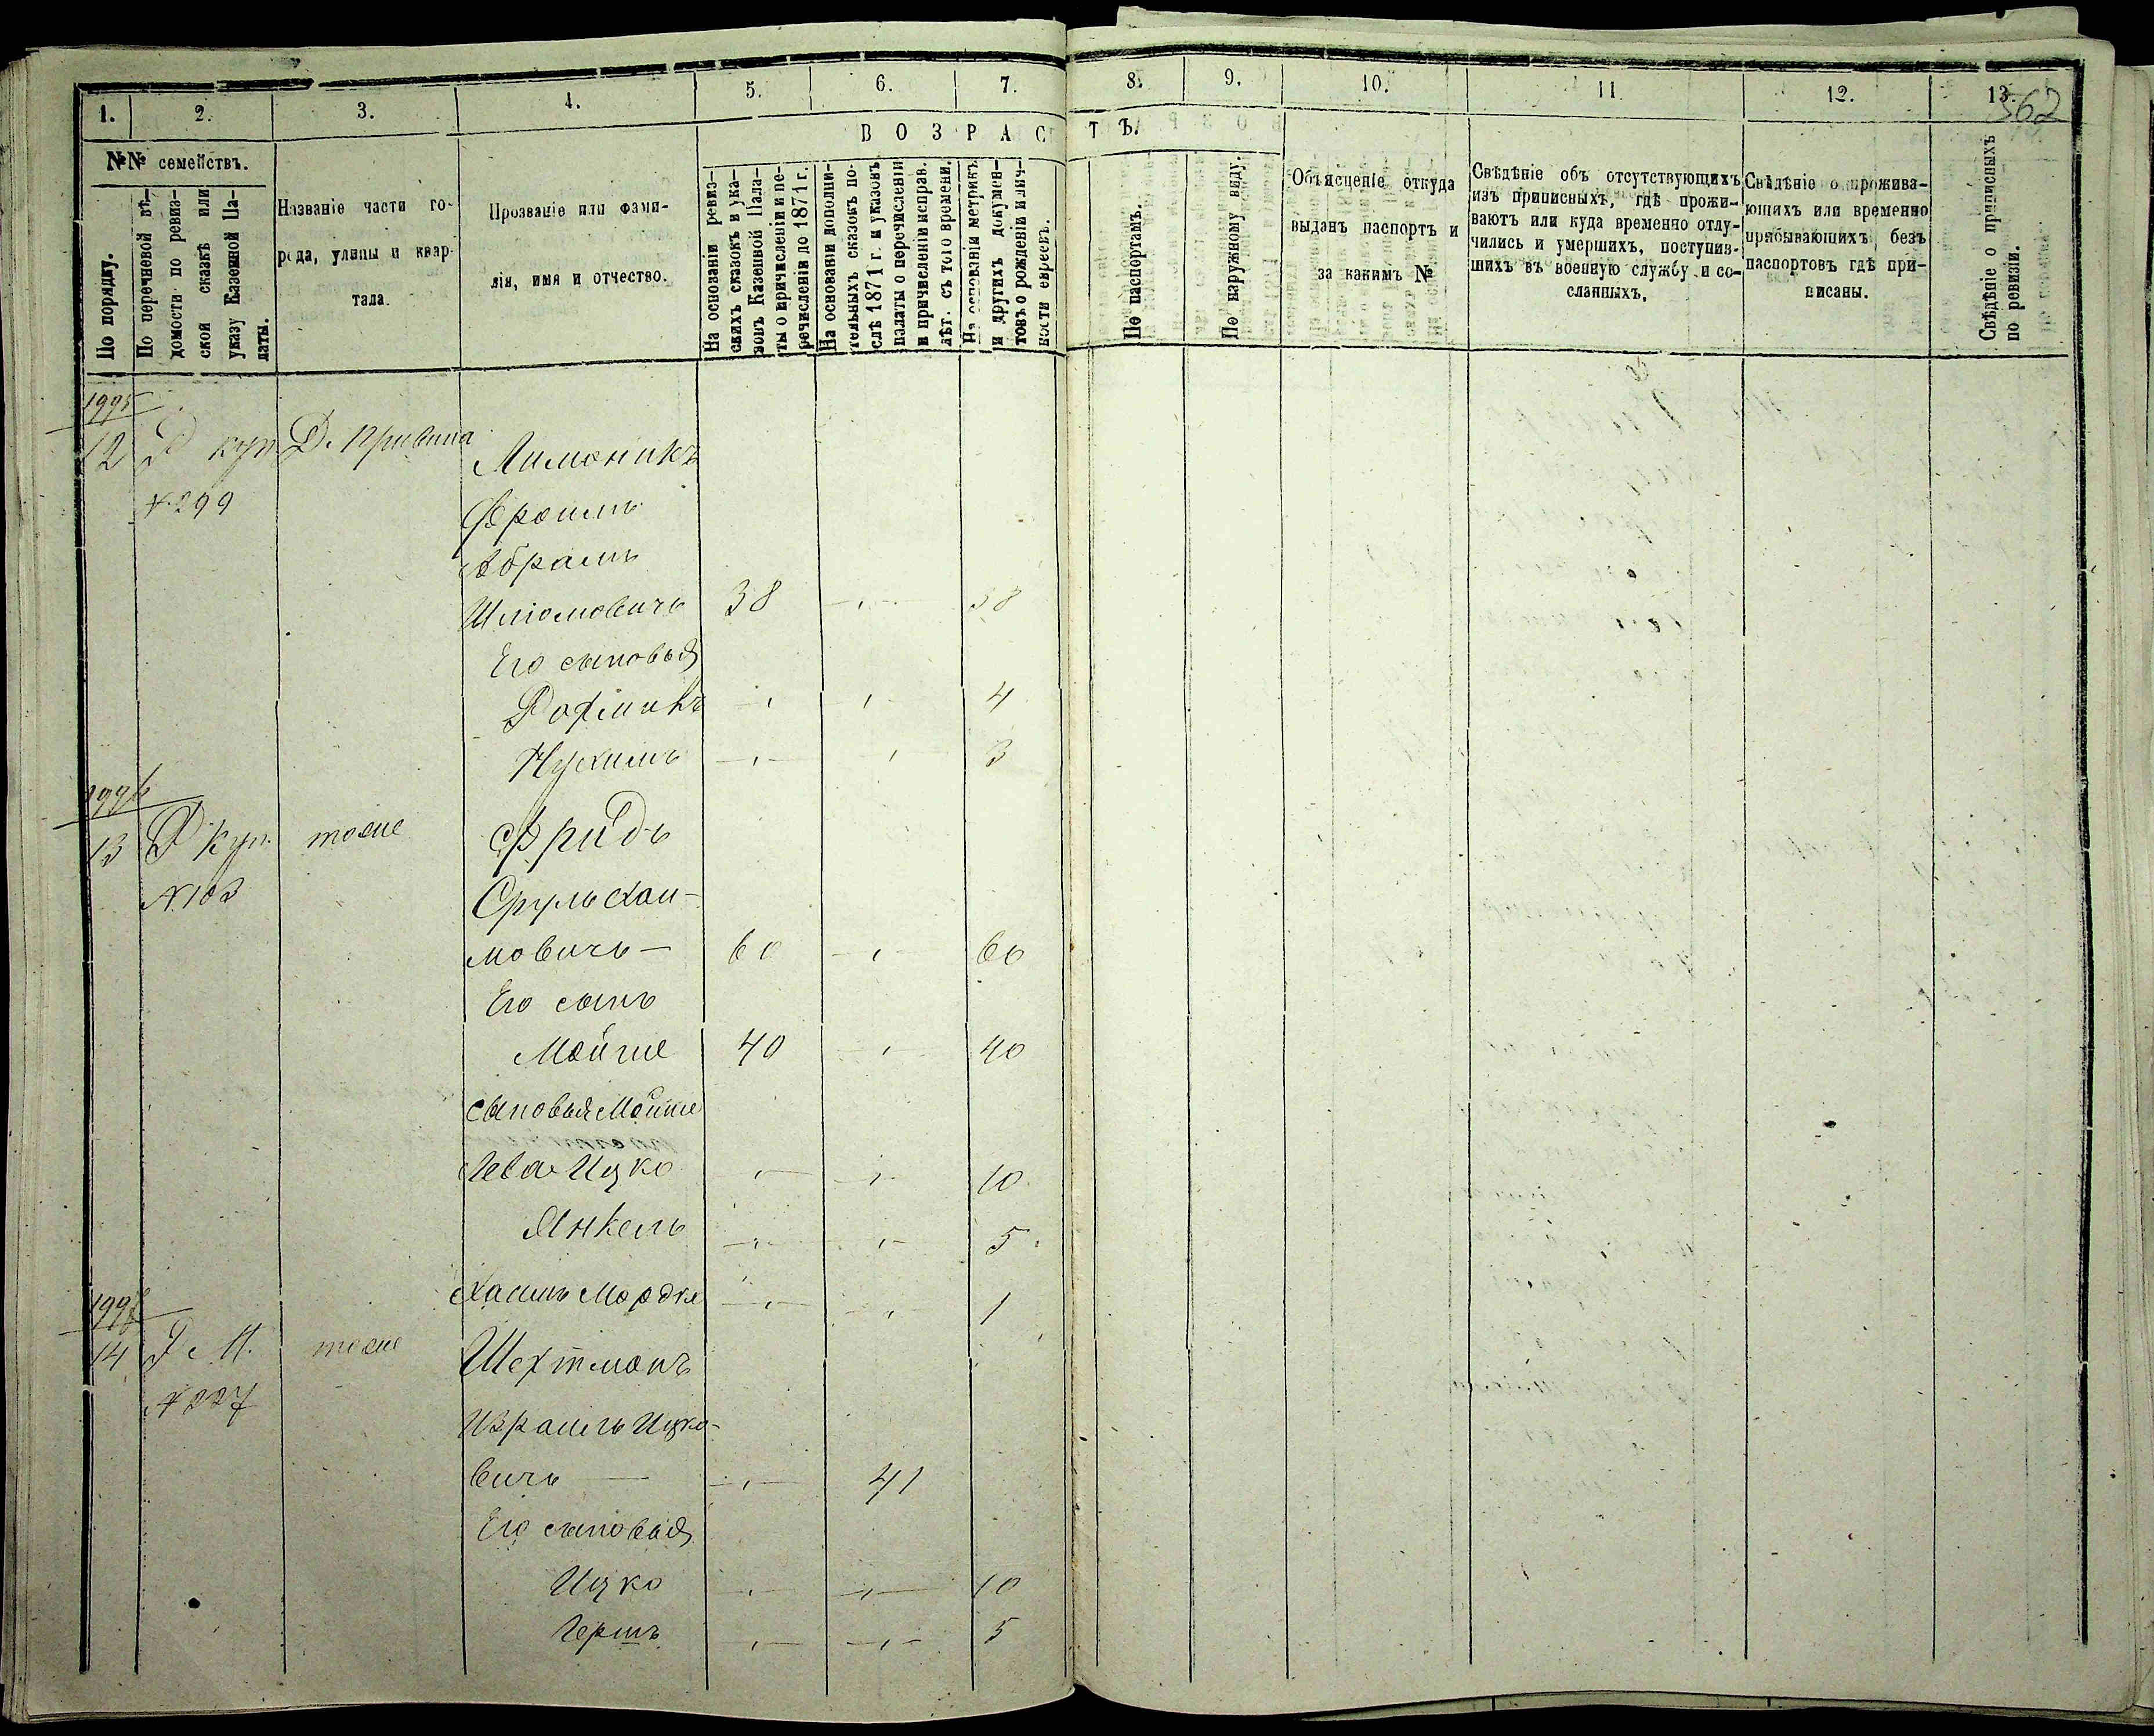 1. 2. 3. 4. 5. 6. 7. 8. 9. 10. 11 12. 13.
562
В О З Р А С Т Ъ.
№№ семействъ.
По порядку.
По перечневой вѣ-
домости по ревиз-
ской сказкѣ или
указу Казенной Па-
латы.
Названіе части го-
рода, улицы и квар-
тала.
Прозваніе или фами-
лія, имя и отчество.
На основаніи ревиз-
скихъ сказокъ и ука-
зовъ Казенной Пала-
ты о причисленіи и пе-
речисленіи до 1871 г.
На основаніи дополни-
тельныхъ сказокъ по-
слѣ 1871 г. и указовъ
палаты о перечисленіи
и причисленіи исправ.
лѣт. съ того времени.
На основаніи метрикъ
и другихъ докумен-
товъ о рожденіи и лич-
ности евреевъ.
По паспортамъ.
По наружному виду.
Объясненіе откуда
выданъ паспортъ и
за какимъ №
Свѣдѣніе объ отсутствующихъ
изъ приписныхъ, гдѣ прожи-
ваютъ или куда временно отлу-
чились и умершихъ, поступив-
шихъ въ военную службу и со-
сланныхъ.
Свѣдѣніе о прожива-
ющихъ или временно
прибывающихъ безъ
паспортовъ гдѣ при-
писаны.
Свѣдѣніе о приписныхъ
по ревизіи.
1995
12 куп Д.
Лимоникъ
№ 299
Фроимъ
Абрамъ
Шліомовичъ 38 58
Его сыновья
Рахмилъ 4
Нухимъ 3
1996
13 куп. тоже Фридъ
№ 103
Сруль Хаи-
мовичъ — 60 60
Его сынъ
Мойше 40 40
сыновья Мойше
Лейба Ицко 10
Янкель 5
Хаимъ Мордко 1
1997
14 М. тоже Шехтманъ
№ 227
Израиль Ицко-
вичъ — 41
Его сыновья
Ицко 10
Гершъ 5